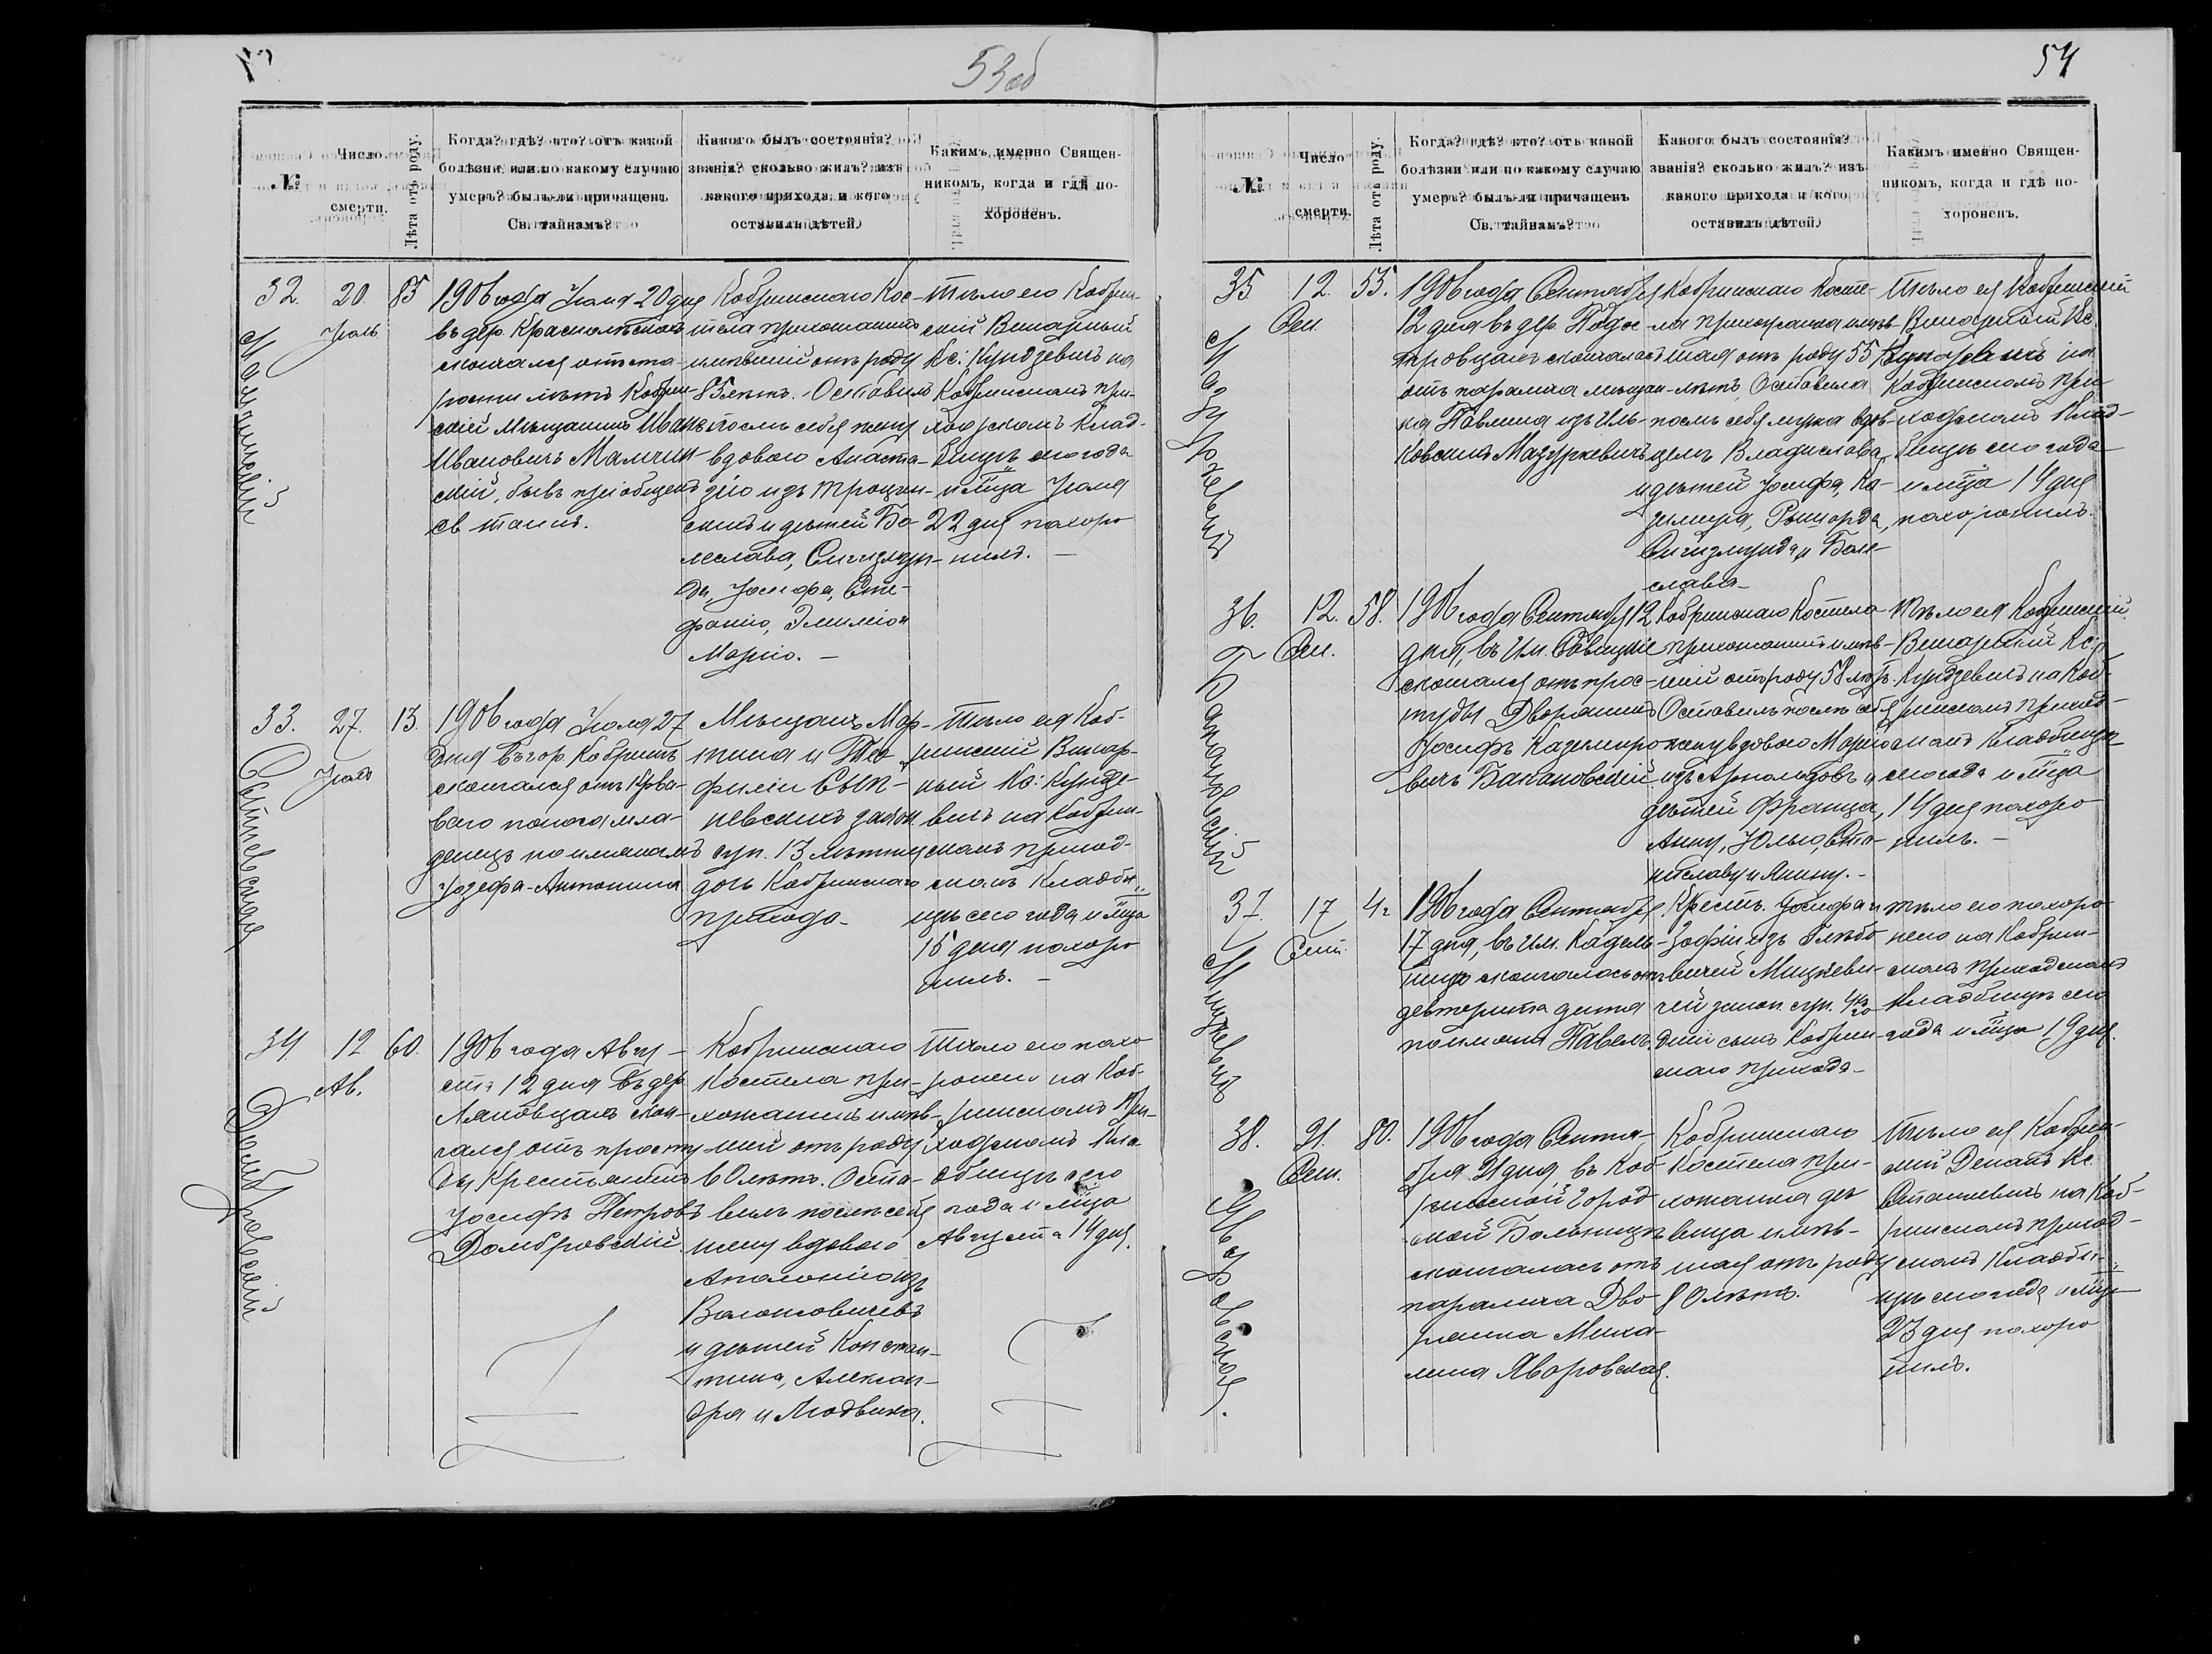 53об
54
№
Число смерти.
Лѣта отъ роду.
Когда? гдѣ? кто? отъ какой
болѣзни или по какому случаю
умеръ? былъ-ли причащенъ
Св. тайнамъ?
Какого былъ состоянія?
званія? сколько жилъ? изъ
какого прихода и кого
оставилъ дѣтей?
Какимъ именно Священ-
никомъ, когда и гдѣ по-
хороненъ.
32. 20. Іюль 85
Мамчинскій
1906 года Іюля 20 дня
въ дер.
скончался отъ ста-
рости лѣтъ Кобрин-
скій Мѣщанинъ Иванъ
Ивановичъ Мамчин-
скій, бывъ пріобщенъ
св. таинъ.
Кобринскаго Кос-
тела прихожанинъ
имѣвшій отъ роду
85 лѣтъ. Оставилъ
послѣ себя жену
вдовою Анаста-
зію изъ
и дѣтей Бо-
леслава, Сигизмун-
да, Іосифа, Сте-
фанію, Эмилію и
Марію. —
Тѣло его Кобрин-
скій Викарный
Кс: Кундзевичъ на
Кобринскомъ При-
ходскомъ Клад-
бищѣ сего года
и м̃ца Іюля
22 дня похоро-
нилъ. —
33. 27. Іюль 13.
1906 года Іюля 27
дня въ гор. Кобринѣ
скончался отъ крова-
ваго поноса мла-
денецъ по именамъ
Іозефа-Антонина
Мѣщанъ Мар-
тина и Тео-
филіи
невскихъ закон.
суп. 13 лѣтняя
дочь Кобринскаго
прихода.
Тѣло ея Коб-
ринскій Викар-
ный Кс: Кундзе-
вичъ на Кобрин-
скомъ приход-
скомъ кладби-
щѣ сего года и м̃ца
15 дня похоро-
нилъ. —
34 12 Ав. 60.
Домбровскій
1906 года Авгу-
ста 12 дня въ дер.
Ляховцахъ скон-
чался отъ просту-
ды Крестьянинъ
Іосифъ Петровъ
Домбровскій.
Кобринскаго
Костела при-
хожанинъ имѣв-
шій отъ роду
60 лѣтъ. Оста-
вилъ послѣ себя
жену вдовою
Аполонію изъ
и дѣтей Констан-
тина, Алексан-
дра и Людвика.
Тѣло его похо-
ронено на Коб-
ринскомъ При-
ходскомъ Кла-
дбищѣ сего
года и м̃ца
Августа 14 дня.
№
Число смерти.
Лѣта отъ роду.
Когда? гдѣ? кто? отъ какой
болѣзни или по какому случаю
умеръ? былъ-ли причащенъ
Св. тайнамъ?
Какого былъ состоянія?
званія? сколько жилъ? изъ
какого прихода и кого
оставилъ дѣтей?
Какимъ именно Священ-
никомъ, когда и гдѣ по-
хороненъ.
35 12. Сен. 55.
Мазуркевичъ
1906 года Сентября
12 дня въ дер.
скончалась
отъ паралича мѣщан-
ка Павлина изъ Иль-
ковскихъ Мазуркевичъ
Кобринскаго Косте-
ла прихожанка имѣв-
шая отъ роду 55
лѣтъ, Оставила
послѣ себя мужа вдов-
цемъ Владислава
и дѣтей Іосифа, Ка-
зимира, Рышарда,
Сигизмунда и Боле-
слава.
Тѣло ея Кобринскій
Викарный Кс.
Кундзевичъ на
Кобринскомъ При-
ходскомъ Клад-
бищѣ сего года
и м̃ца 14 дня
похоронилъ.
36. 12. Сен. 58.
Бакановскій
1906 года Сентября 12
дня, въ Им.
скончался отъ прос-
туды Дворянинъ
Іосифъ Каземиро-
вичъ Бакановскій.
Кобринскаго Костела
прихожанинъ имѣв-
шій отъ роду 58 лѣтъ.
Оставилъ послѣ себя
жену вдовою Марію
изъ и
дѣтей Франца,
Анну, Юлью, Ста-
ниславу и Янину. -
Тѣло его Кобринскій
Викарный Кс.
Кундзевичъ на Коб-
ринскомъ приход-
скомъ кладбищѣ
сего года и м̃ца
14 дня похоро-
нилъ. —
37. 17 Сен. 4г
Мицкевичъ
1906 года Сентября
17 дня, въ Им.
скончалось отъ
дифтерита дитя
по имени Павелъ.
Крест. Іосифа и
Зофіи изъ
Мицкеви-
чей закон. суп.
сынъ Кобрин-
скаго прихода.
Тѣло его похоро-
нено на Кобрин-
скомъ приходскомъ
Кладбищѣ сего
года и м̃ца 19 дня.
38. 21. Сен. 80.
Яворовская.
1906 года Сентя-
бря 21 дня въ Коб-
ринской Город-
ской Больницѣ
скончалась отъ
паралича Дво-
рянка Миха-
лина Яворовская.
Кобринскаго
Костела при-
хожанка дѣ-
вица имѣв-
шая отъ роду
80 лѣтъ.
Тѣло ея Кобрин-
скій Деканъ Кс.
на Коб-
ринскомъ приход-
скомъ Кладби-
щѣ сего года и м̃ца
23 дня похоро-
нилъ.